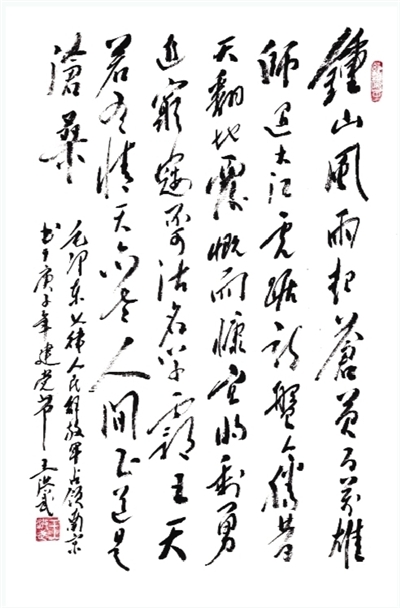 鍾山風雨起蒼黃百萬雄
師過大江虎踞龍盤今勝昔
天翻地覆慨而慷宜將剩勇
追窮寇不可沽名學霸王天
若有情天亦老人間正道是
滄桑
毛澤東七律人民解放軍占領南京
書於庚子年建党節 王洪武